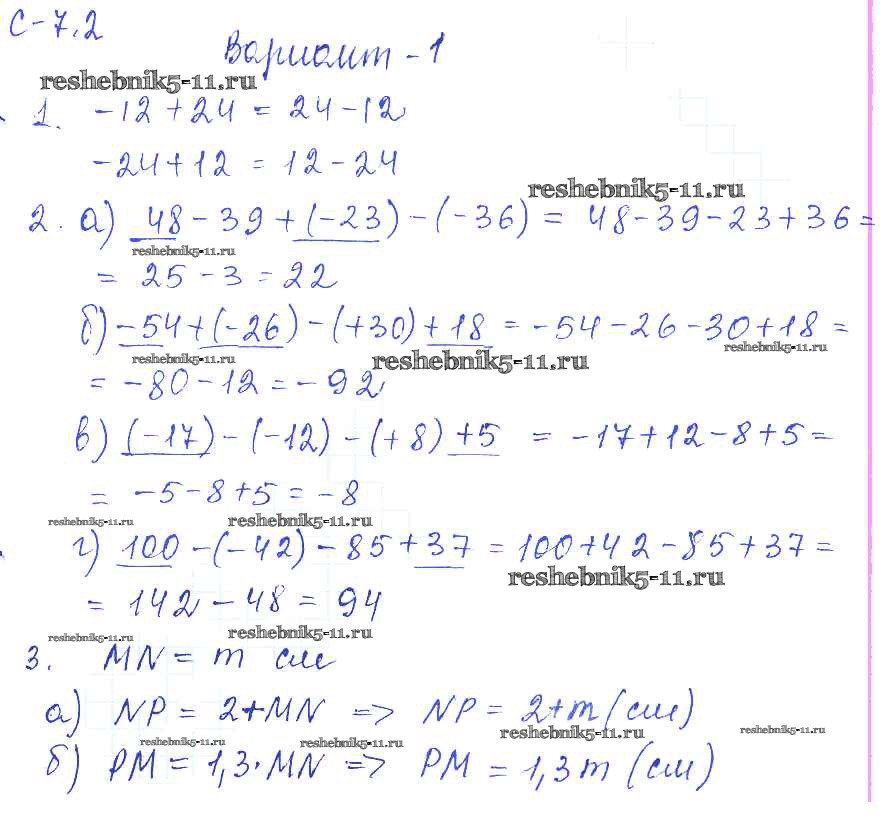 С-7.2
Вариант-1
reshebnik5-11.ru
1. -12+24 = 24-12
-24+12 = 12-24
reshebnik5-11.ru
2. а) 48-39+(-23)-(-36) = 48-39-23+36 =
reshebnik5-11.ru
= 25-3 = 22
б) -54+(-26)-(+30)+18 = -54-26-30+18 =
reshebnik5-11.ru
reshebnik5-11.ru reshebnik5-11.ru
= -80-12 = -92
в) (-17)-(-12)-(+8)+5 = -17+12-8+5 =
= -5-8+5 = -8
reshebnik5-11.ru reshebnik5-11.ru
г) 100-(-42)-85+37 = 100+42-85+37 =
reshebnik5-11.ru
= 142-48 = 94
reshebnik5-11.ru reshebnik5-11.ru
3. MN = m см
а) NP = 2+MN => NP = 2+m (см)
reshebnik5-11.ru reshebnik5-11.ru
reshebnik5-11.ru reshebnik5-11.ru
б) PM = 1,3·MN => PM = 1,3m (см)